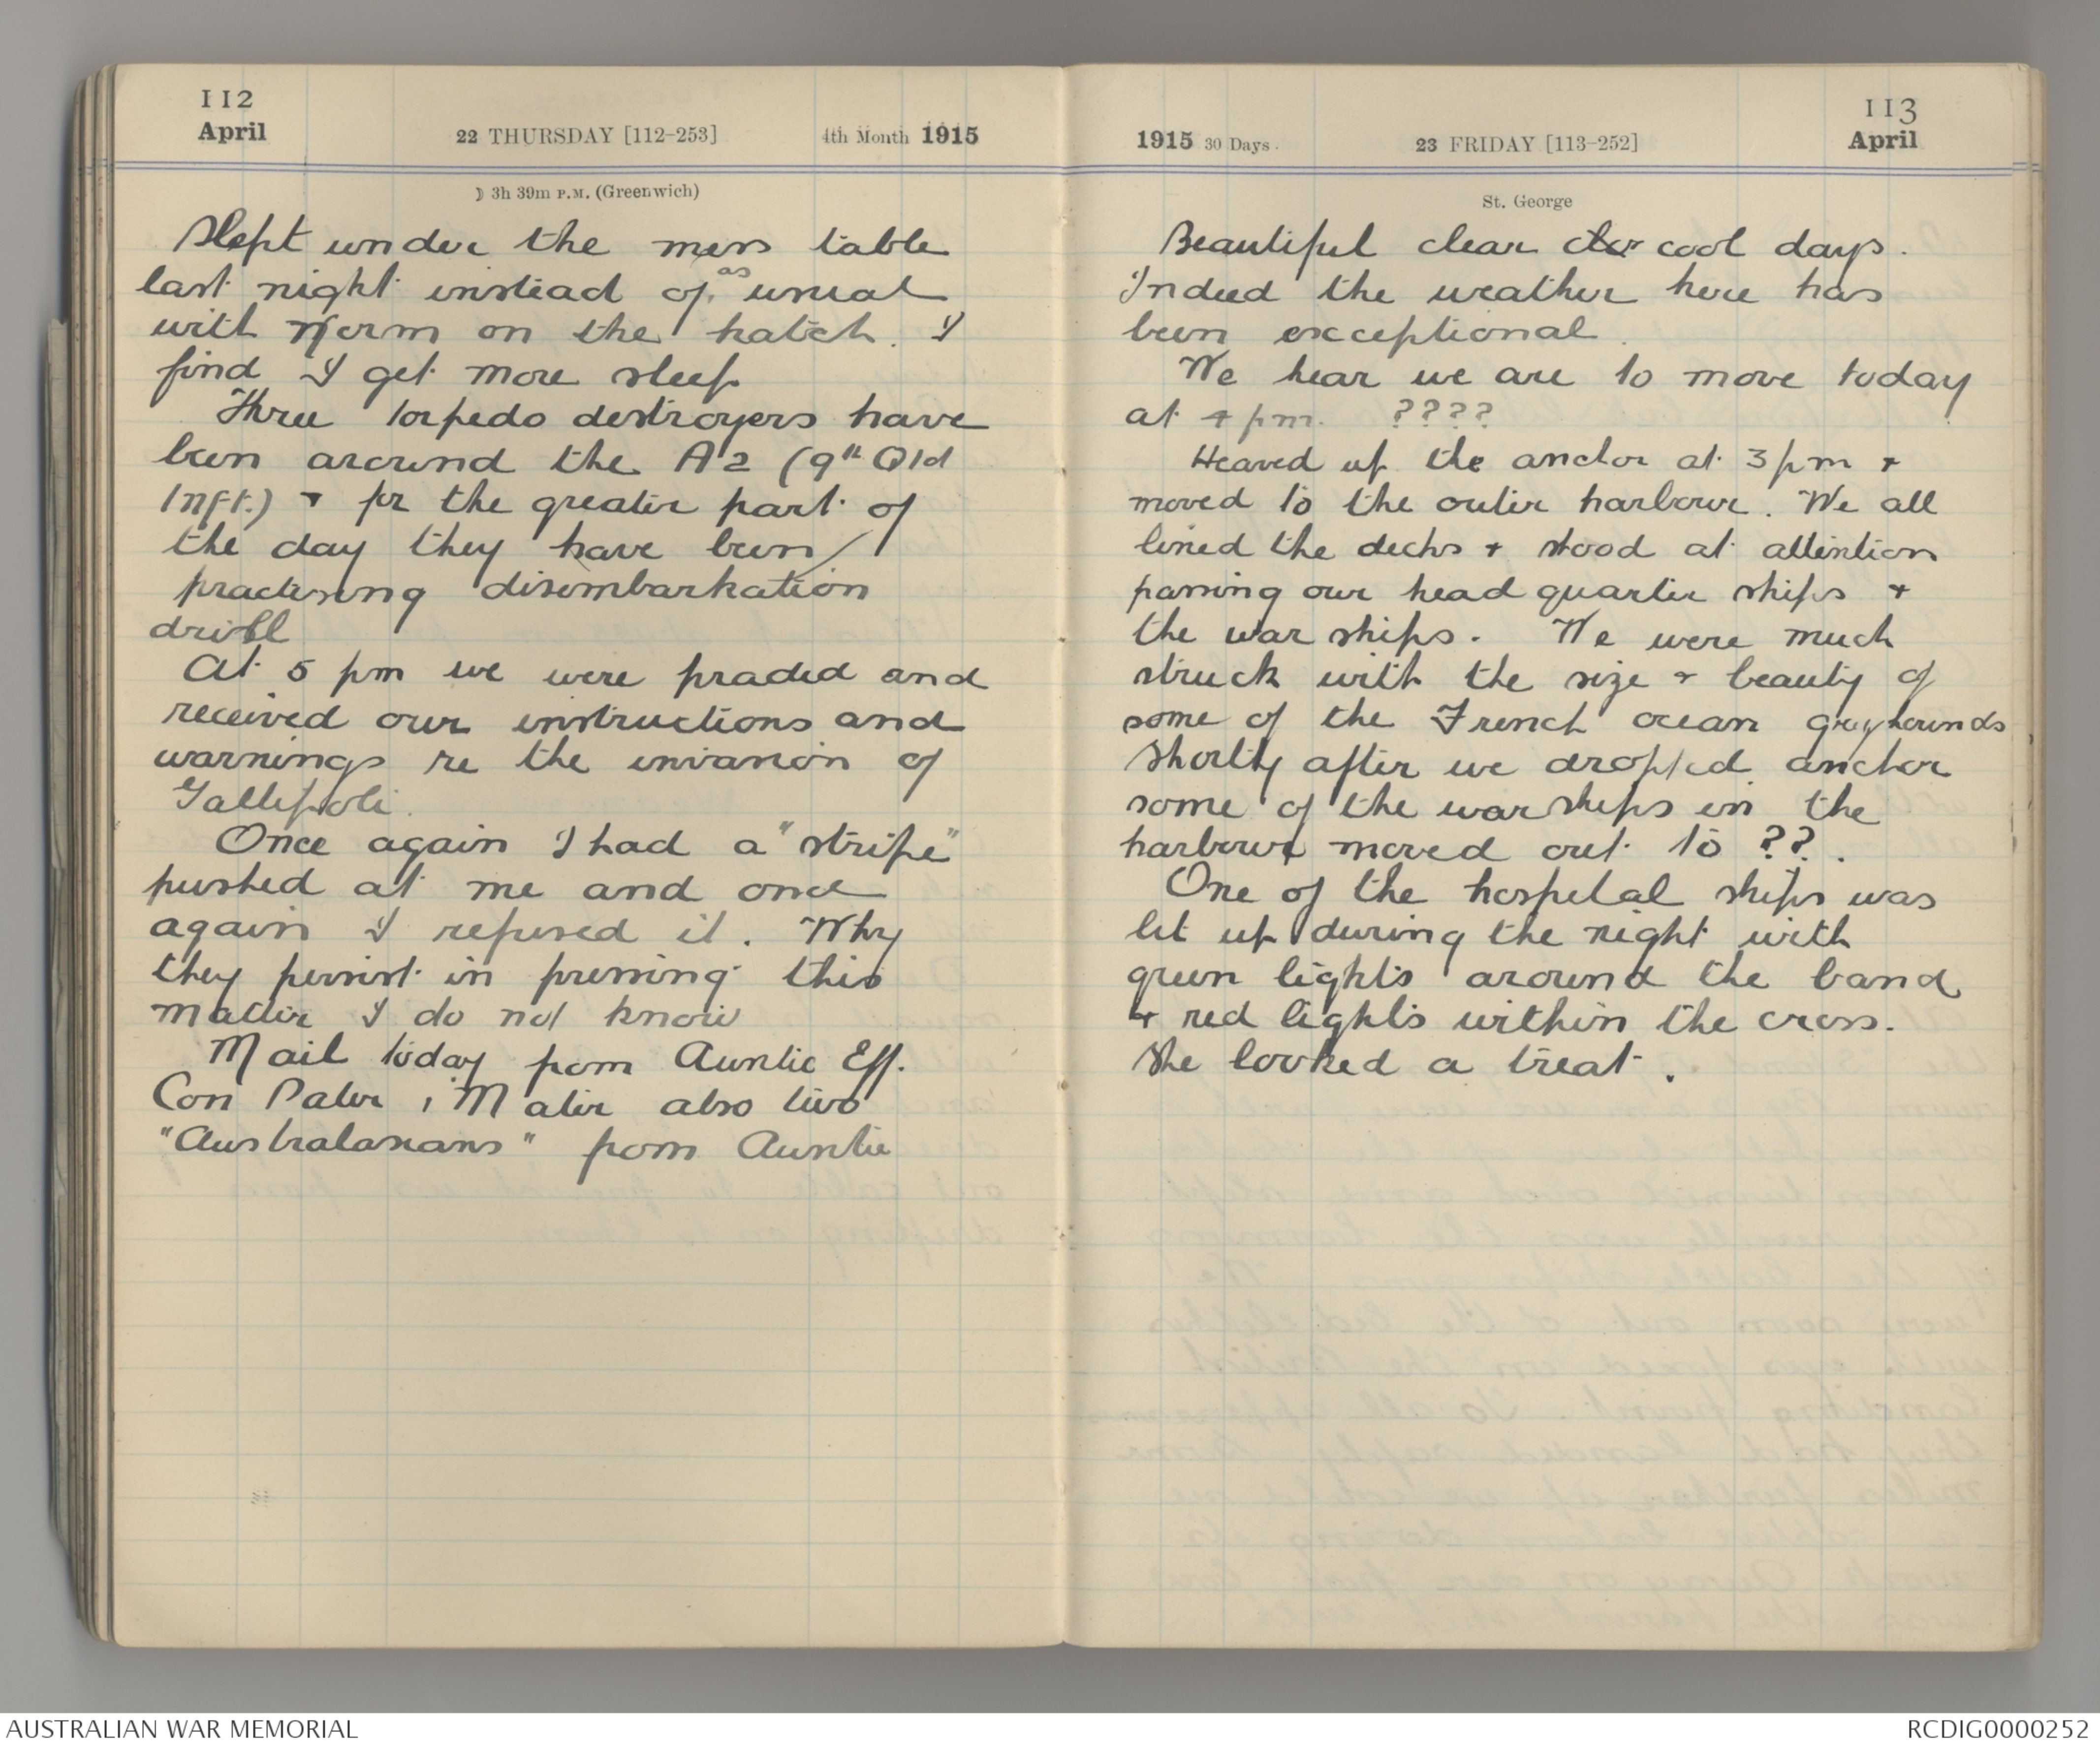 112
April
22 THURSDAY [112-253]
4th Month 1915
☽ 3h 39m P.M. (Greenwich)
Slept under the mess table
last night instead of as usual
with Norm on the hatch. I
find I get more sleep
Three torpedo destroyers have
been around the A2 (9th Qld
Inft.) + for the greater part of
the day they have been
practising disembarkation
drill
At 5 pm we were praded and
received our instructions and
warnings re the invasion of
Gallipoli.
Once again I had a "stripe"
pushed at me and once
again I refused it. Why
they persist in pressing this
matter I do not know
Mail today from Auntie Eff.
Con Pater, Mater also two
"Australasians" from Auntie
113
1915 30 Days.
23 FRIDAY [113-252]
April
St. George
Beautiful clear cool days.
Indeed the weather here has
been exceptional.
We hear we are to move today
at 4 pm. ????
Heaved up the anchor at 3 pm +
moved to the outer harbour. We all
lined the decks + stood at attention
passing our head quarter ships +
the war ships. We were much
struck with the size + beauty of
some of the French ocean greyhounds
Shortly after we dropped anchor
some of the warships in the
harbour moved out to ??.
One of the hospital ships was
lit up during the night with
green lights around the band
+ red lights within the cross.
She looked a treat.
AUSTRALIAN WAR MEMORIAL
RCDIG0000252